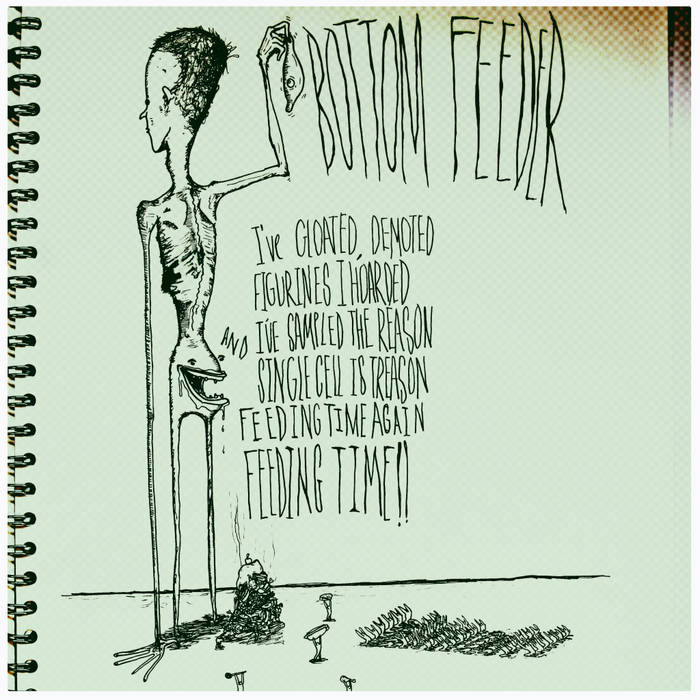 BOTTOM FEEDER
I've GLOATED, DENOTED
FIGURINES I HOARDED
AND I'VE SAMPLED THE REASON
SINGLE CELL IS TREASON
FEEDING TIME AGAIN
FEEDING TIME!!